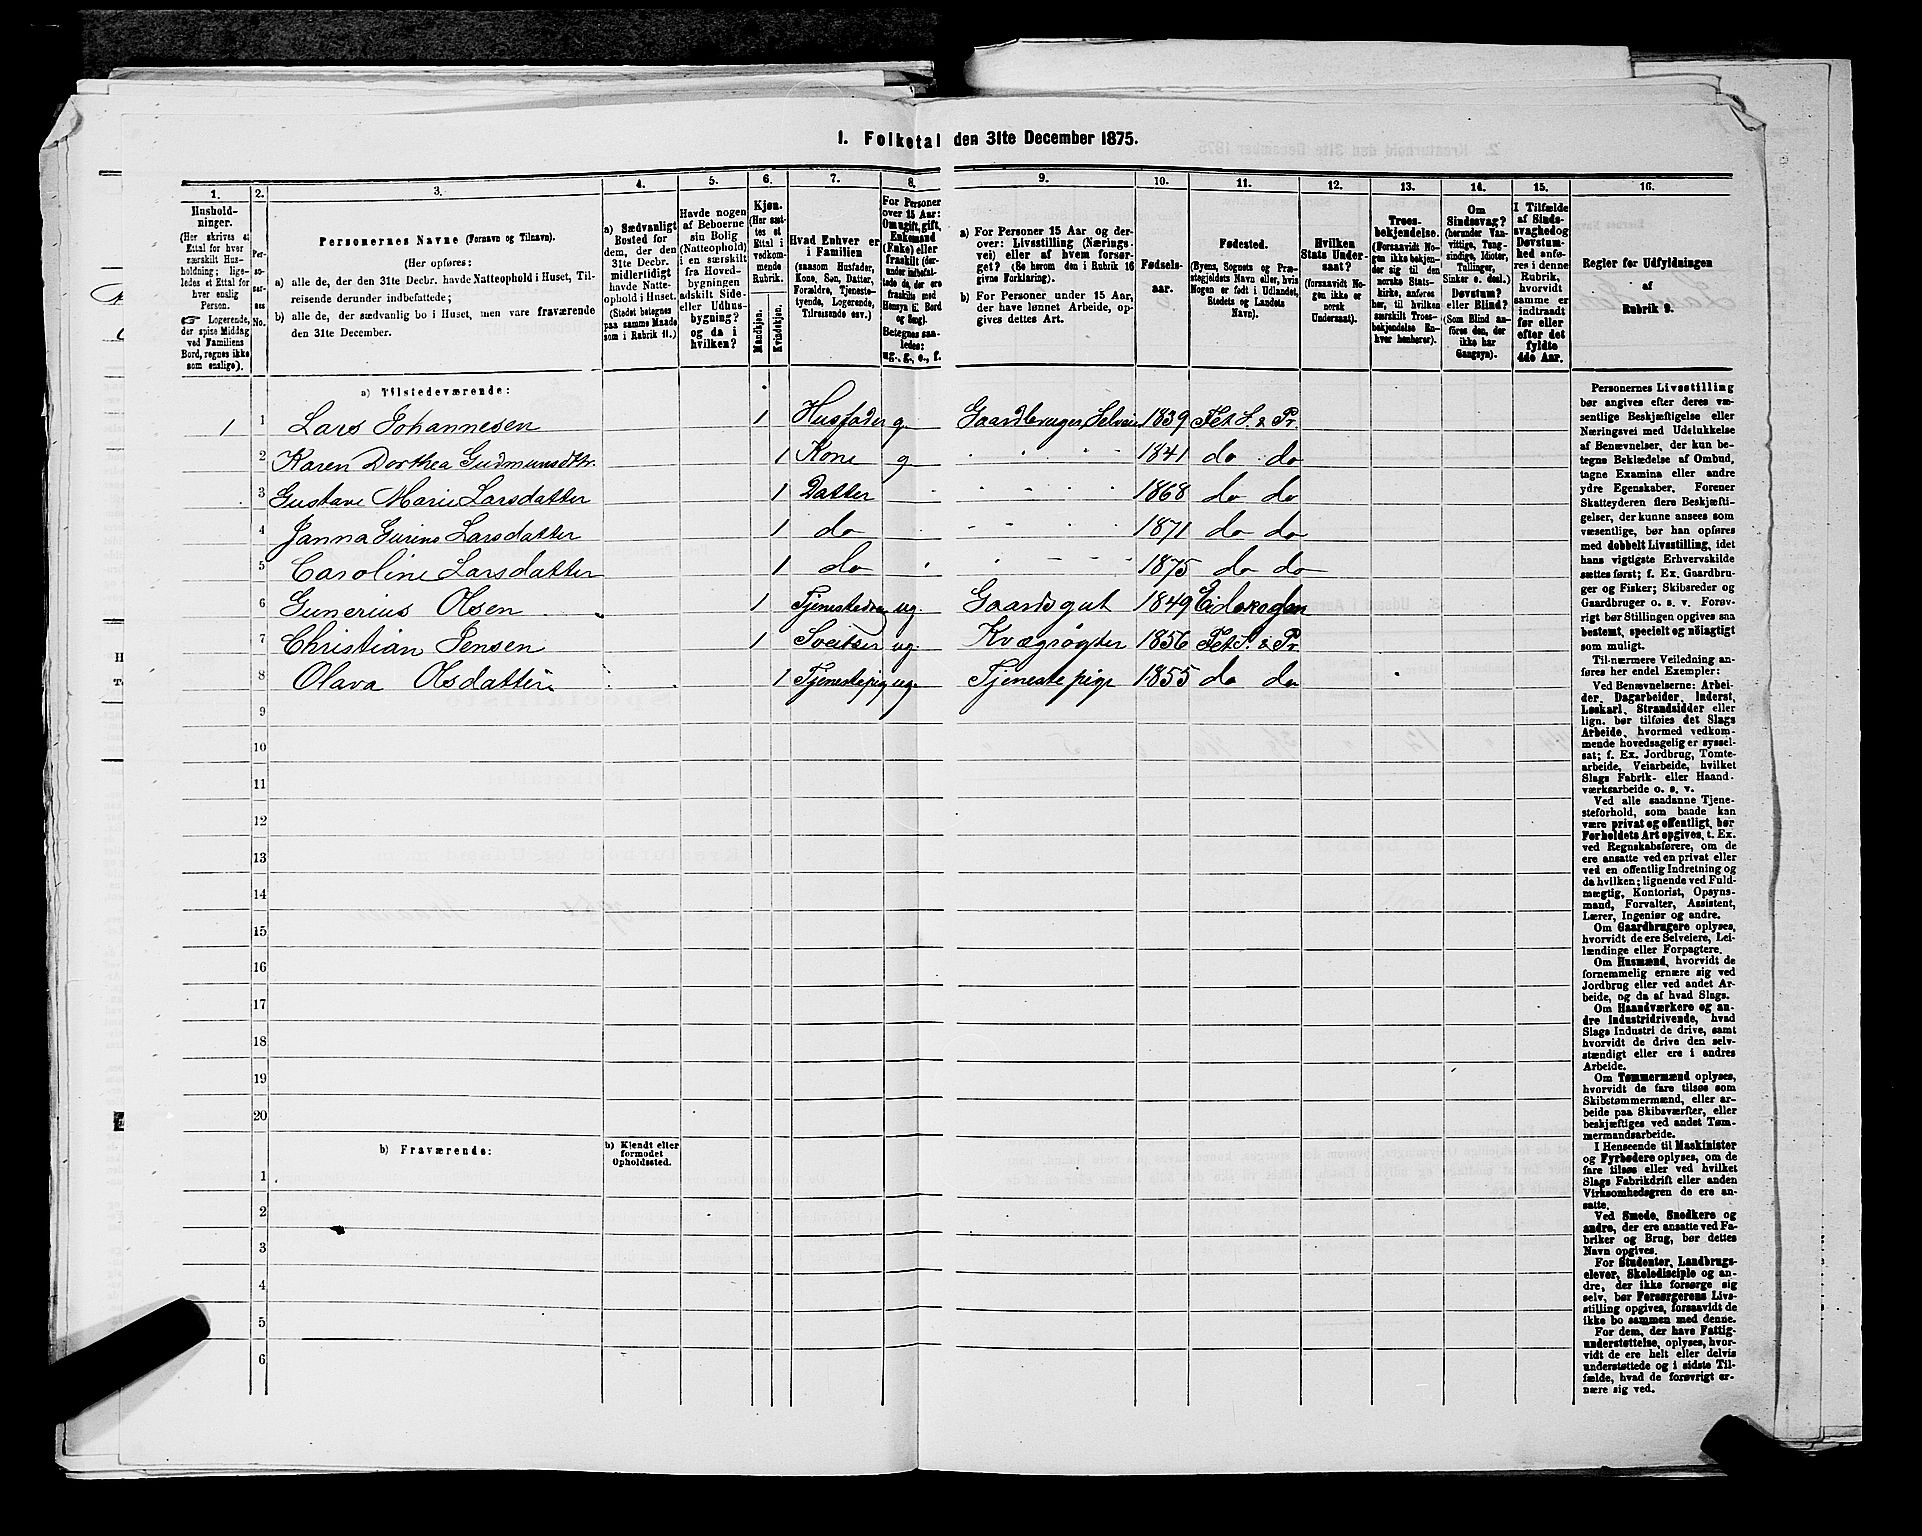 1. Folketal den 31te December 1875.
1. 2. 3. 4. 5. 6. 7. 8. 9. 10. 11. 12. 13. 14. 15. 16.
Hushold-
ninger.
(Her skrives et
Ettal for hver
særskilt Hus-
holdning; lige-
ledes et Ettal for
hver enslig
Person.
☞ Logerende,
der spise Middag
ved Familiens
Bord, regnes ikke
som enslige).
Per-
so-
ner-
nes
No.
Personernes Navne (Fornavn og Tilnavn).
(Her opføres:
a) alle de, der den 31te Decbr. havde Natteophold i Huset, Til-
reisende derunder indbefattede;
b) alle de, der sædvanlig bo i Huset, men vare fraværende
den 31te December.
a) Sædvanligt
Bosted for
dem, der den
31te Decbr.
midlertidigt
havde Natte-
ophold i Huset.
(Stedet betegnes
paa samme Maade
som i Rubrik 11.)
Havde nogen
af Beboerne
sin Bolig
(Natteophold)
i en særskilt
fra Hoved-
bygningen
adskilt Side-
eller Udhus-
bygning?
og da i
hvilken?
Kjøn.
(Her sæt-
tes et
Ettal i
vedkom-
mende
Rubrik.
Mandkjøn.
Kvindekjøn.
Hvad Enhver er
i Familien
(saasom Husfader,
Kone, Søn, Datter,
Forældre, Tjeneste-
tyende, Logerende,
Tilreisende osv.)
For Personer
over 15 Aar:
Om ugift, gift,
Enkemand
(Enke) eller
fraskilt (der-
under indbefat-
tede de, der ere
fraskilte med
Hensyn til Bord
og Seng).
Betegnes saa-
ledes:
ug., g., e., f.
a) For Personer 15 Aar og der-
over: Livsstilling (Nærings-
vei) eller af hvem forsør-
get? (Se herom den i Rubrik 16
givne Forklaring).
b) For Personer under 15 Aar,
der have lønnet Arbeide, op-
gives dettes Art.
Fødsels-
aar.
Fødested.
(Byens, Sognets og Præ-
stegjeldets Navn eller, hvis
Nogen er født i Udlandet,
Stedets og Landets
Navn).
Hvilken
Stats Under-
saat?
(forsaavidt No-
gen ikke er
norsk
Undersaat).
Troes-
bekjendelse.
(Forsaavidt No-
gen ikke bekjen-
der sig til den
norske Stats-
kirke, anføres
her, til hvilket
særskilt Troes-
bekjendelse En-
hver henhører).
Om
Sindssvag?
(herunder Van-
vittige, Tung-
sindige, Idioter,
Tullinger,
Sinker o. desl.)
Døvstum?
eller Blind?
(Som Blind an-
føres den, der
ikke har
Gangsyn).
I Tilfælde
af Sinds-
svaghed og
Døvstum-
hed anfø-
res i denne
Rubrik,
hvorvidt
samme er
indtraadt
før eller
efter det
fyldte
4de Aar.
Regler for Udfyldningen
af
Rubrik 9.
a) Tilstedeværende:
1 1 Lars Johannesen 1 Husfader g Gaardbruger, Selveier 1839 Fet S. & Pr
2 Karen Dorthea Gudmunsdtr. 1 Kone g 1841 do do
3 Gustave Marie Larsdatter 1 Datter 1868 do do
4 Janna Gurine Larsdatter 1 do 1871 do do
5 Caroline Larsdatter 1 do 1875 do do
6 Gunerius Olsen 1 Tjenestedreng ug. Gaardsgut 1849
7 Christian Jensen 1 Sveitser ug. Kvægrøgter 1856 Fet S. & Pr
8 Olava Olsdatter 1 Tjenestepig ug. Tjenestepige 1855 do do
9
10
11
12
13
14
15
16
17
18
19
20
b) Fraværende:
b) Kjendt eller
formodet
Opholdssted.
1
2
3
4
5
6
Personernes Livsstilling
bør angives efter deres væ-
sentlige Beskjæftigelse eller
Næringsvei med Udelukkelse
af Benævnelser, der kun be-
tegne Beklædelse af Ombud,
tagne Examina eller andre
ydre Egenskaber. Forener
Skatteyderen flere Beskjæfti-
gelser, der kunne ansees som
væsentlige, bør han opføres
med dobbelt Livsstilling, idet
hans vigtigste Erhvervskilde
sættes først; f. Ex. Gaardbru-
ger og Fisker; Skibsreder og
Gaardbruger o. s. v. Forøv-
rigt bør Stillingen opgives saa
bestemt, specielt og nøiagtigt
som muligt.
Til nærmere Veiledning an-
føres her endel Exempler:
Ved Benævnelserne: Arbei-
der, Dagarbeider, Inderst,
Løskarl, Strandsidder eller
lign. bør tilføies det Slags
Arbeide, hvormed vedkom-
mende hovedsagelig er syssel-
sat; f. Ex. Jordbrug, Tomte-
arbeide, Veiarbeide, hvilket
Slags Fabrik- eller Haand-
værksarbeide o. s. v.
Ved alle saadanne Tjene-
steforhold, som baade kan
være privat og offentligt, bør
Forholdets Art opgives, t. Ex.
ved Regnskabsførere, om de
ere ansatte ved en privat eller
ved en offentlig Indretning og
da hvilken; lignende ved Fuld-
mægtig, Kontorist, Opsyns-
mand, Forvalter, Assistent,
Lærer, Ingeniør og andre.
Om Gaardbrugere oplyses,
hvorvidt de ere Selveiere, Lei-
lændinge eller Forpagtere.
Om Husmænd, hvorvidt de
fornemmelig ernære sig ved
Jordbrug eller ved andet Ar-
beide, og da af hvad Slags.
Om Haandværkere og an-
dre Industridrivende, hvad
Slags Industri de drive, samt
hvorvidt de drive den selv-
stændigt eller ere i andres
Arbeide.
Om Tømmermænd oplyses,
hvorvidt de fare tilsøs som
Skibstømmermænd, eller ar-
beide paa Skibsværfter, eller
beskjæftiges ved andet Tøm-
mermandsarbeide.
I Henseende til Maskinister
og Fyrbødere oplyses, om de
fare tilsøs eller ved hvilket
Slags Fabrikdrift eller anden
Virksomhedsgren de ere an-
satte.
Ved Smede, Snedkere og
andre, der ere ansatte ved Fa-
briker og Brug, bør dettes
Navn opgives.
For Studenter, Landbrugs-
elever, Skoledisciple og an-
dre, der ikke forsørge sig
selv, bør Forsørgerens Livs-
stilling opgives, forsaavidt de
ikke bo sammen med denne.
For dem, der have Fattig-
understøttelse, oplyses, hvor-
vidt de ere helt eller delvis
understøttede og i sidste Til-
fælde, hvad de forøvrigt er-
nære sig ved.